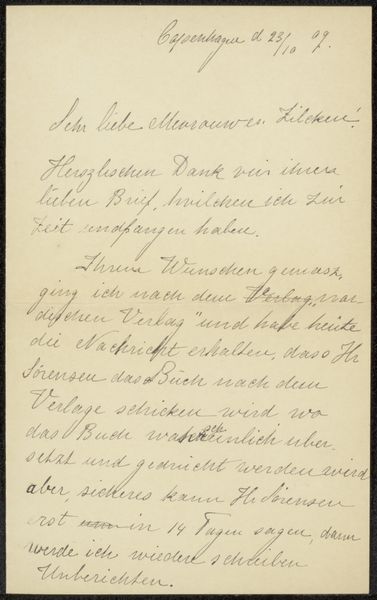 Copenhagen d 23/10 99.
Sehr liebe Mevrouw en Zilcken!
Herzlischen Dank vür ihren
lieben Brief, hvilchen ich zür
Zeit undfangen haben.
Ihren Wunschen gemasz,
ging ich nach dem "nor
dischen Verlag" und habe heute
die Nachricht erhalten, dass Hr
Sörensen das Buch nach dem
Verlage schicken wird wo
das Buch wahrscheinlich über
setzt und gedruckt werden wird
aber, sicheres kann Hr. Sörensen
erst in 14 Tagen sagen, dann
werde ich wieder schreiben
Unberichten.